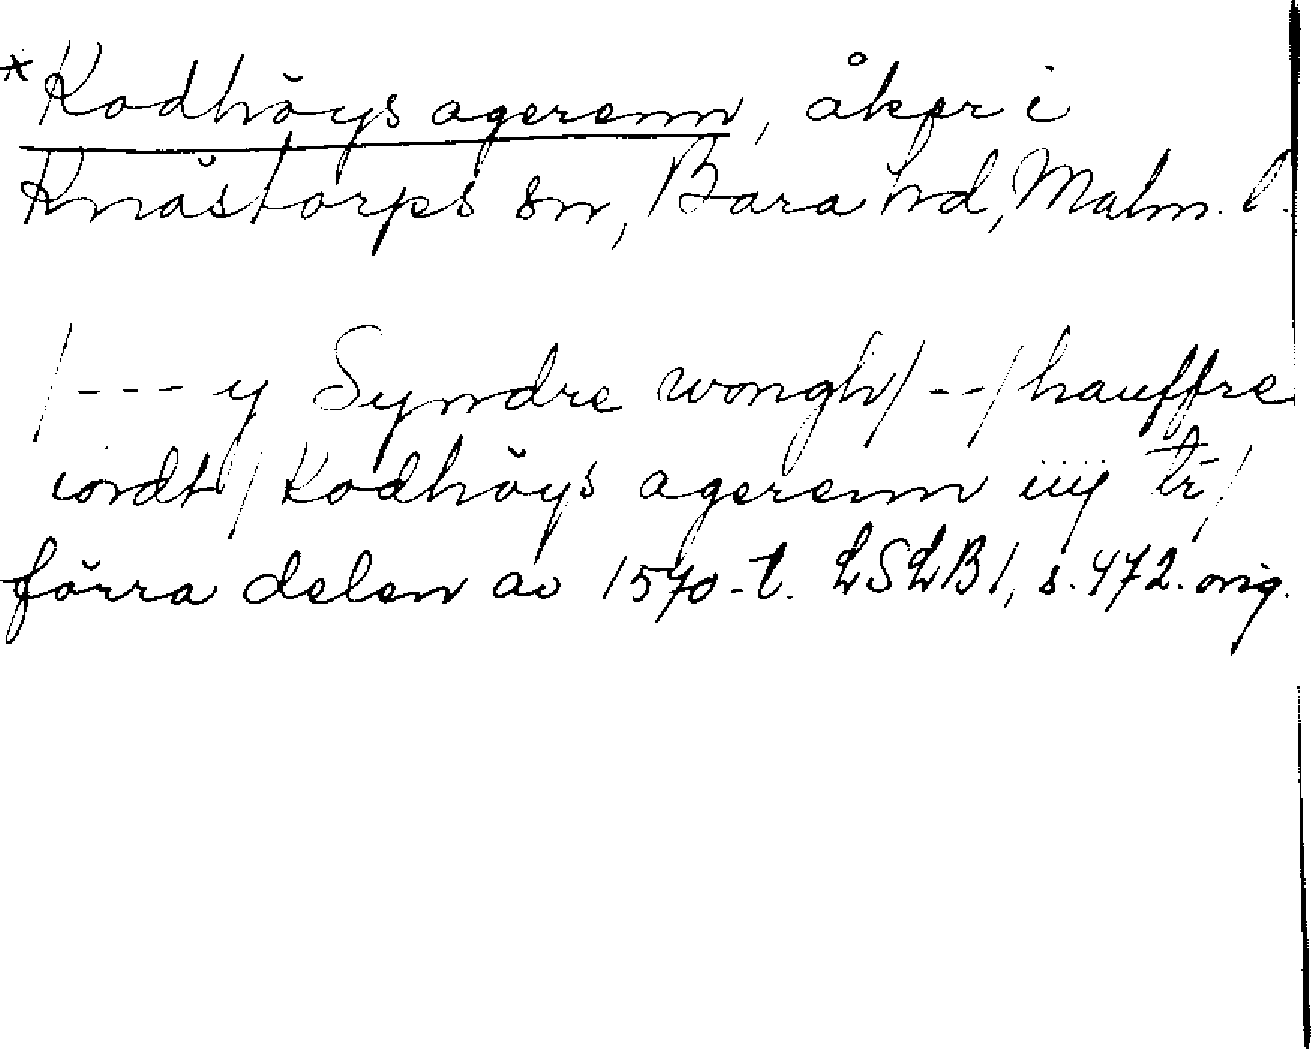 *Kodhöys agerenn, åker i
Knästorps sn, Bara hd, Malm. l.
/--- y Syndre wongh/--/hauffre
iordt/Kodhöys agerenn iiij tr̄/
förra delen av 1570-t. LSLB1, s. 472. orig.